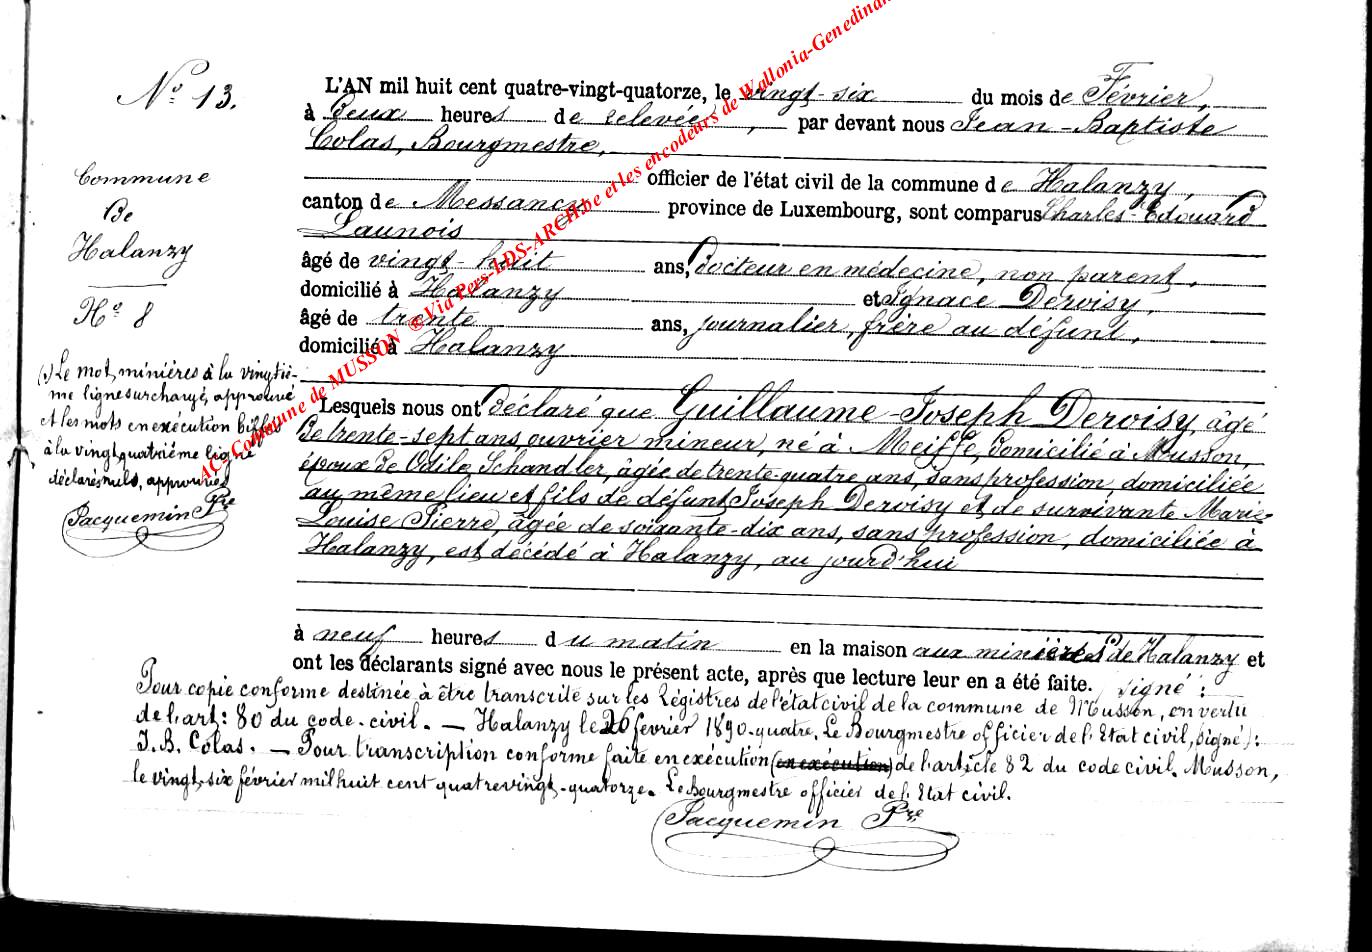 No 13.
Commune
De
Halanzy
No 8
(1) Le mot minières à la vingtiè-
me ligne surchargé, approuvé
et les mots en exécution biffés
à la vingt quatrième ligne
déclarés nuls, approuvés
Jacquemin Pre
L'AN mil huit cent quatre-vingt-quatorze, le vingt-six du mois de Février,
à Deux heures de relevée, par devant nous Jean-Baptiste
Colas, Bourgmestre,
officier de l'état civil de la commune de Halanzy,
canton de Messancy province de Luxembourg, sont comparus Charles-Edouard
Launois
âgé de vingt-huit ans, Docteur en médecine, non parent,
domicilié à Halanzy et Ignace Dervisy,
âgé de trente ans, journalier, frère au défunt,
domicilié à Halanzy
Lesquels nous ont Déclaré que Guillaume-Joseph Dervisy, âgé
De trente-sept ans, ouvrier mineur, né à Meix, domicilié à Musson,
époux de Odile Schandler, âgée de trente-quatre ans, sans profession, domiciliée
au même lieu et fils de défunt Joseph Dervisy et de survivante Marie-
Louise Pierre, âgée de soixante-dix ans, sans profession, domiciliée à
Halanzy, est décédé à Halanzy, aujourd'hui
à neuf heures du matin en la maison aux minières de Halanzy et
ont les déclarants signé avec nous le présent acte, après que lecture leur en a été faite. / signé :
Pour copie conforme destinée à être transcrite sur les Régistres de l'état civil de la commune de Musson, en vertu
de l'art : 80 du code civil. — Halanzy le 26 fevrier 1890-quatre. Le Bourgmestre officier de l'Etat civil, (signé) :
J. B. Colas. — Pour transcription conforme faite en exécution (en exécution) de l'article 82 du code civil. Musson,
le vingt-six février mil huit cent quatrevingt-quatorze. Le Bourgmestre officier de l'Etat civil.
Jacquemin Pre
AC: Commune de MUSSON ®Via Pers-LDS-ARCH.be et les encodeurs de Wallonia-Genedinan